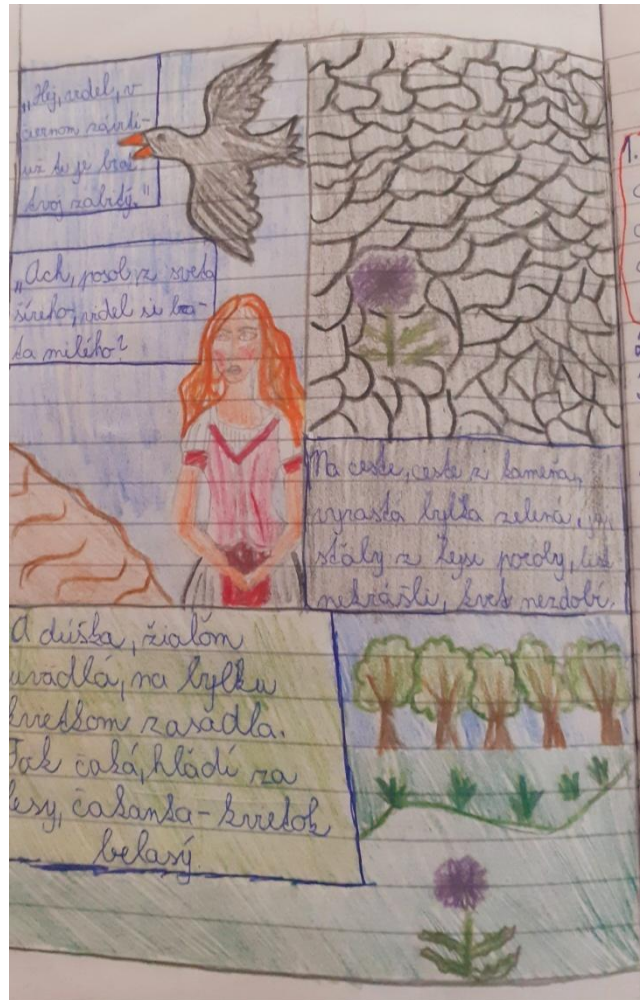 „Hej, videl, v
čiernom zátiší
už ti je brat
tvoj zabitý."
„Ach, posol z sveta
šíreho, videl si bra-
ta milého?
Na ceste, ceste z kameňa,
vyrastá bylka zelená,
stály z lejse poroby, list
nekrášli, kvet nezdobí.
A dúška, žiaľom
uvädlá, na bylku
kvietkom zasadla.
Tak čaká, hľadí za
lesy, čakanka-kvietok
belasý.
1.